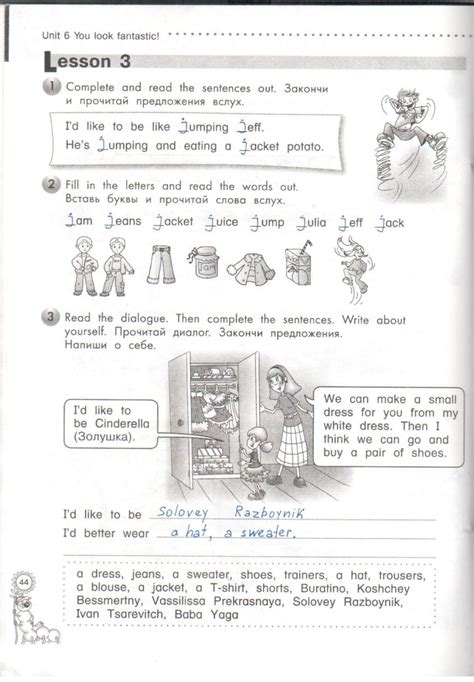 Unit 6 You look fantastic!
Lesson 3
1 Complete and read the sentences out. Закончи
и прочитай предложения вслух.
I'd like to be like jumping Jeff.
He's jumping and eating a jacket potato.
2 Fill in the letters and read the words out.
Вставь буквы и прочитай слова вслух.
jam jeans jacket juice jump Julia Jeff Jack
3 Read the dialogue. Then complete the sentences. Write about
yourself. Прочитай диалог. Закончи предложения.
Напиши о себе.
I'd like to
be Cinderella
(Золушка).
We can make a small
dress for you from my
white dress. Then I
think we can go and
buy a pair of shoes.
I'd like to be Solovey Razboynik
I'd better wear a hat, a sweater.
a dress, jeans, a sweater, shoes, trainers, a hat, trousers,
a blouse, a jacket, a T-shirt, shorts, Buratino, Koshchey
Bessmertny, Vassilissa Prekrasnaya, Solovey Razboynik,
Ivan Tsarevitch, Baba Yaga
44